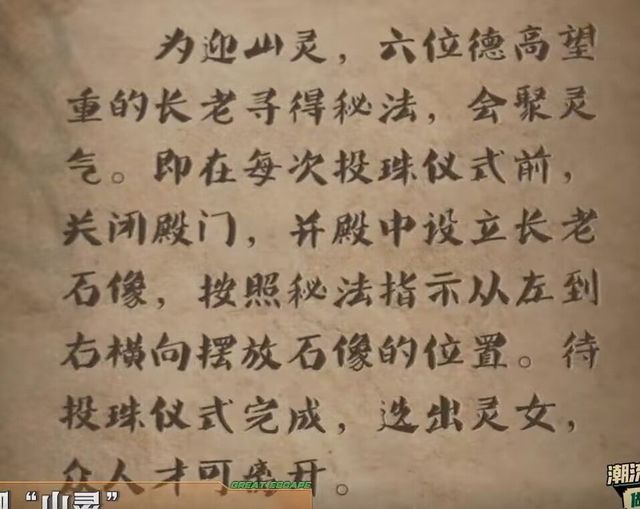 为迎山灵，六位德高望
重的长老寻得秘法，会聚灵
气。即在每次投珠仪式前，
关闭殿门，并殿中设立长老
石像，按照秘法指示从左到
右横向摆放石像的位置。待
投珠仪式完成，选出灵女，
众人才可离开。
GREAT ESCAPE
“山灵”
潮流